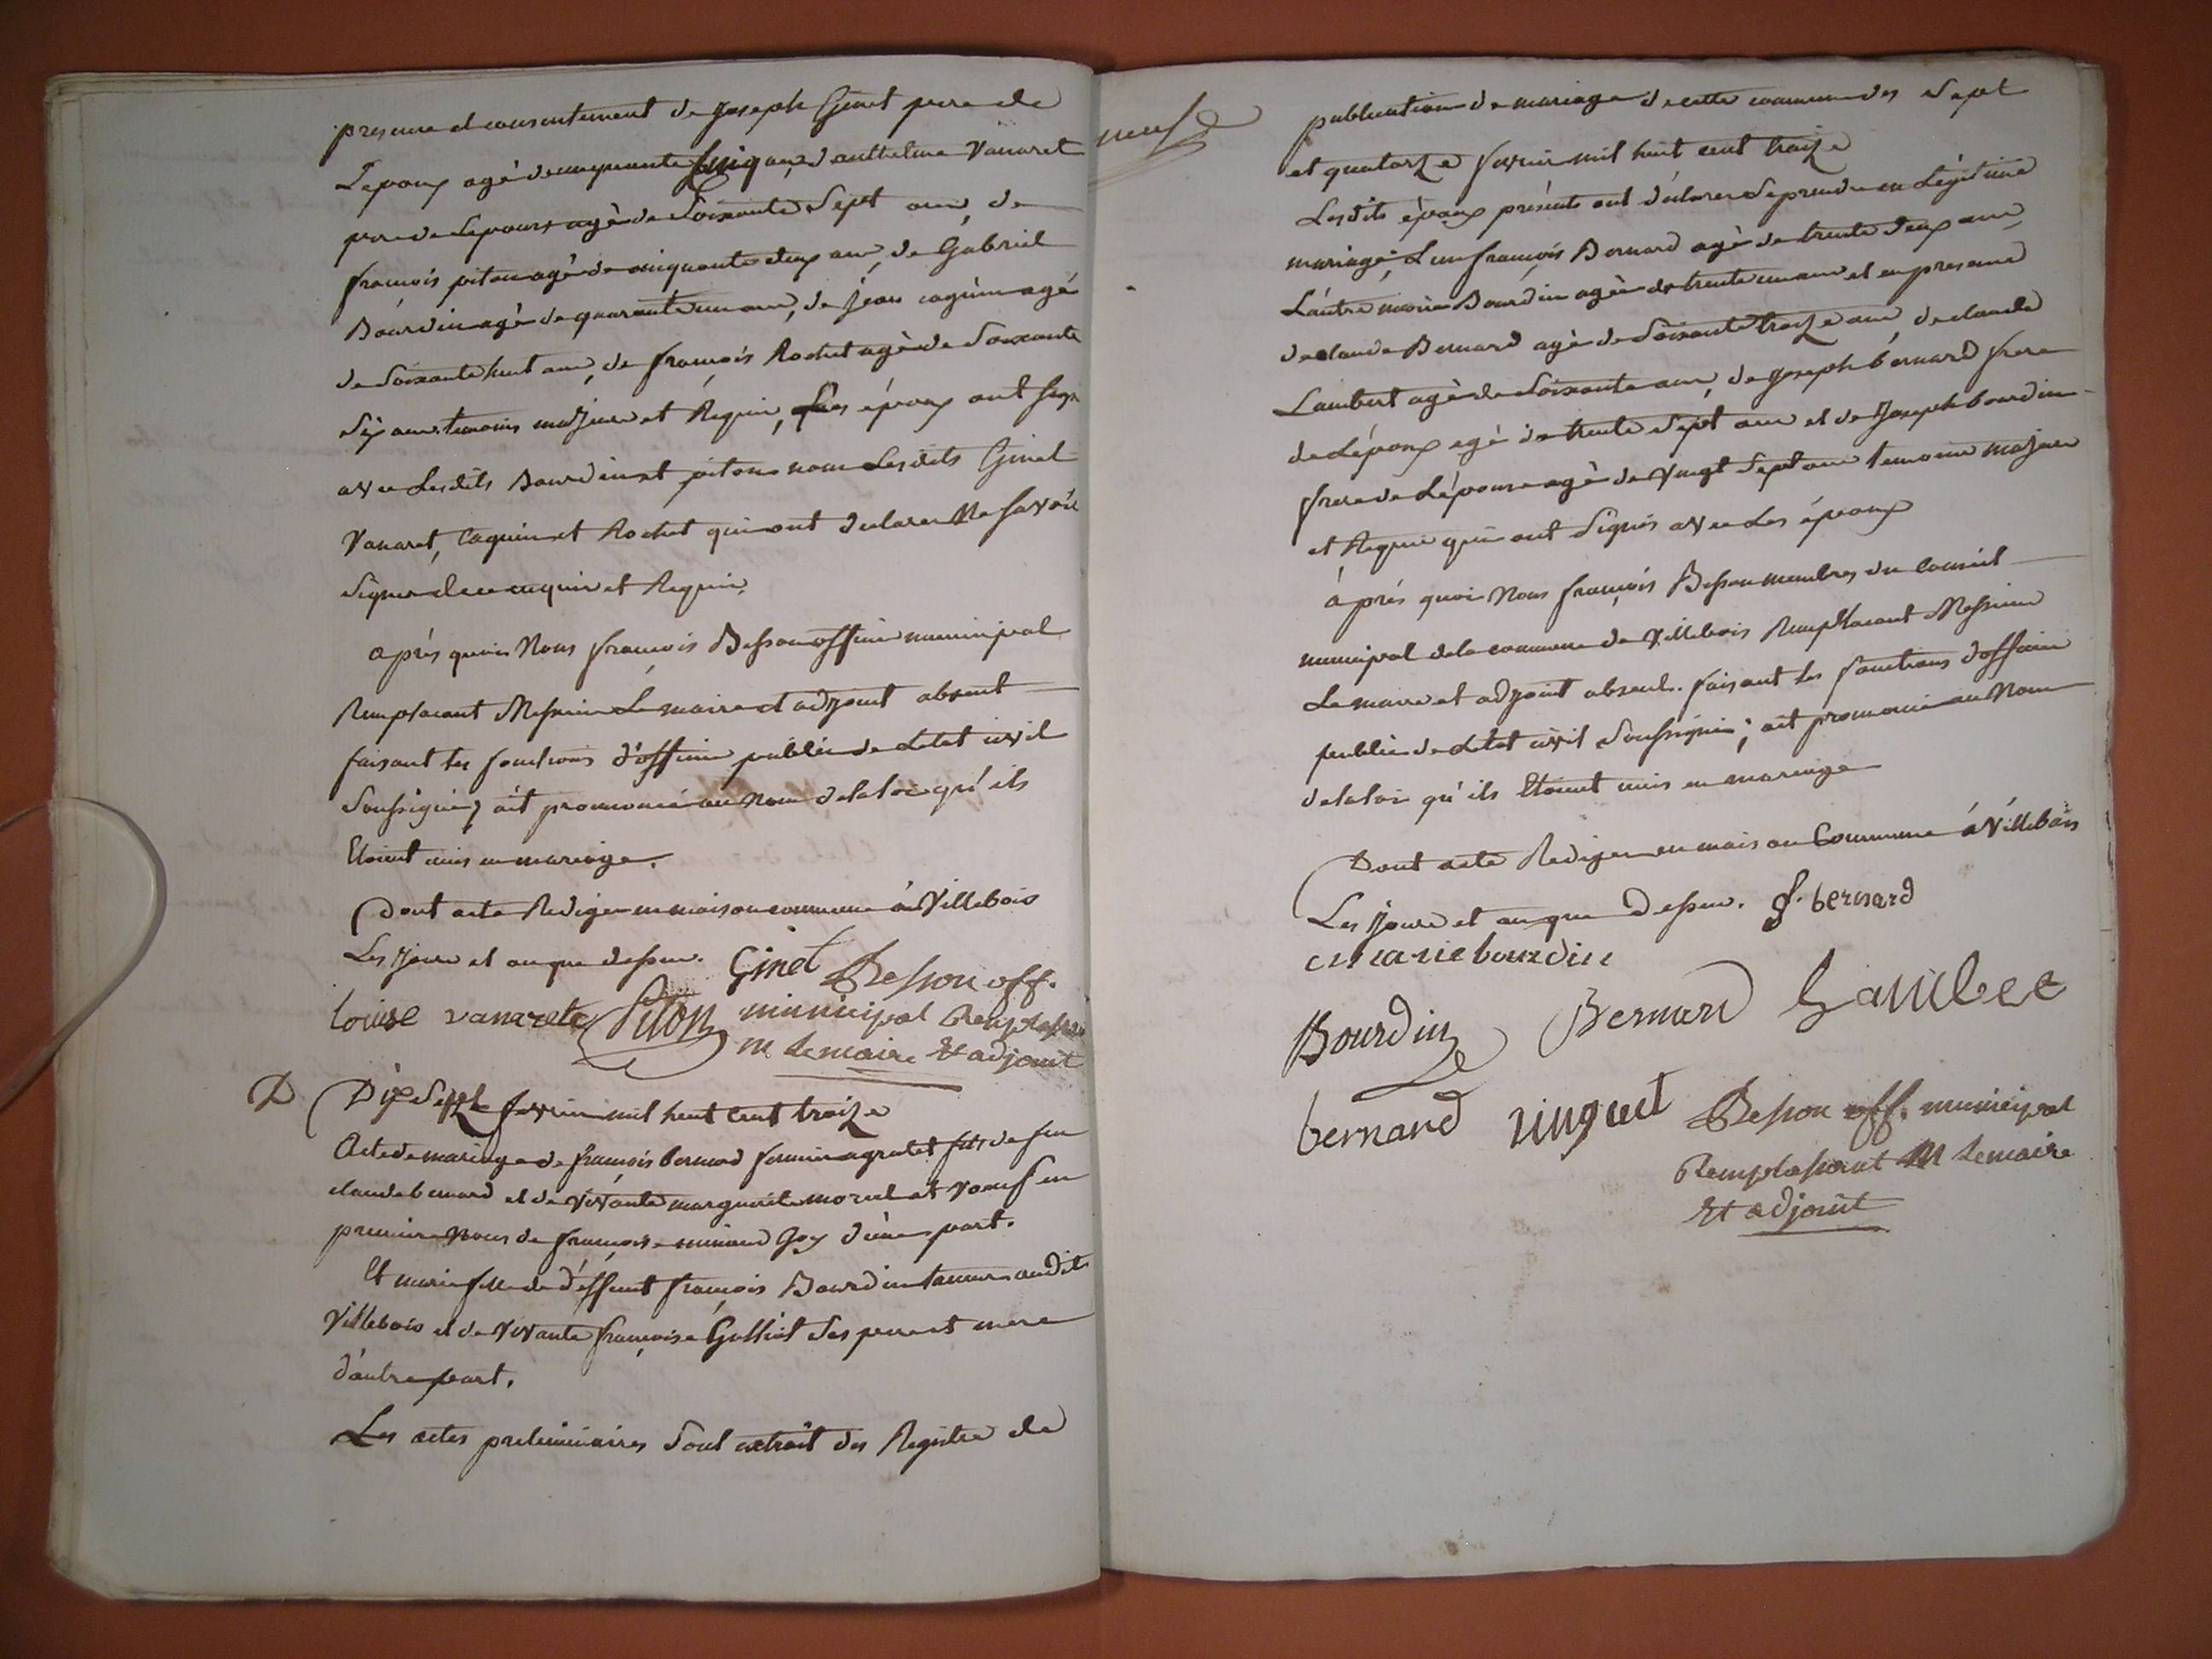 presence et consentement de joseph Ginet pere de
L'epoux agé de cinquante cinq ans d'anthelme Vanaret
pere de Lepouse agé de Soixante Sept ans, de
françois piton agé de cinquante deux ans, de Gabriel
Bourdin agé de quarante un ans, de jean caguin agé
de Soixante huit ans, de françois Rochet agé de Soixante
Six ans temoins majeurs et Requis, Les époux ont signé
avec Lesdits Bourdin et piton non Lesdits Ginet
Vanaret, Caguin et Rochet qui ont declarer Ne Savoir
Signer de ce enquis et Requis,
après quoi Nous françois Besson officier municipal
Remplacant Messieurs Le maire et adjoint absent
faisant les fonctions d'officier public de Letat civil
Soussigné, ait prononcé au Nom de la loi qu'ils
Etoient unis en mariage.
Dont acte Rediger en maison commune à Villebois
Les jour et an que dessus. Ginet Besson off.
louise vanarete Piton municipal Remplassant
m. lemaire Et adjoint
D Dix Sept fevrier mil huit cent treize
Acte de mariage de françois bernard fermier agrolet fils de feu
claude bernard et de vivante marguerite morel et Veuf en
premiere Noces de françoise Goy d'une part.
Et marie fille de deffunt françois Bourdin tanneur audit
Villebois et de vivante françoise Golliat Ses pere et mere
d'autre part.
Les actes preliminaires Sont extrait des Registre de
neuf
publication de mariage de cette commune des Sept
et quatorze fevrier mil huit cent treize
Lesdits époux présents ont déclarer Se prendre en Légitime
mariage, L'un françois Bernard agé de trente deux ans,
L'autre marie Bourdin agée de trente un ans et en presence
de claude Bernard agé de Soixante treize ans, de claude
Lambert agé de Soixante ans, de joseph bernard frere
de L'époux agé de trente Sept ans et de Joseph bourdin
frere de L'épouse agé de Vingt Sept ans temoins majeurs
et Requis qui ont Signés avec Les époux
après quoi Nous françois Besson membres du Conseil
municipal de la commune de Villebois Remplacant Messieurs
Le maire et adjoint absents. faisant les fonctions d'officier
public de Létat civil Soussigné; ait prononcé au Nom
de la loi qu'ils Etoient unis en mariage
Dont acte Rediger en maison Commune à Villebois
Les jour et an que Dessus. f. bernard
marie bourdin
Bourdin Bernard Lambert
bernard ringuet Besson off. municipal
Remplassant M lemaire
Et adjoint